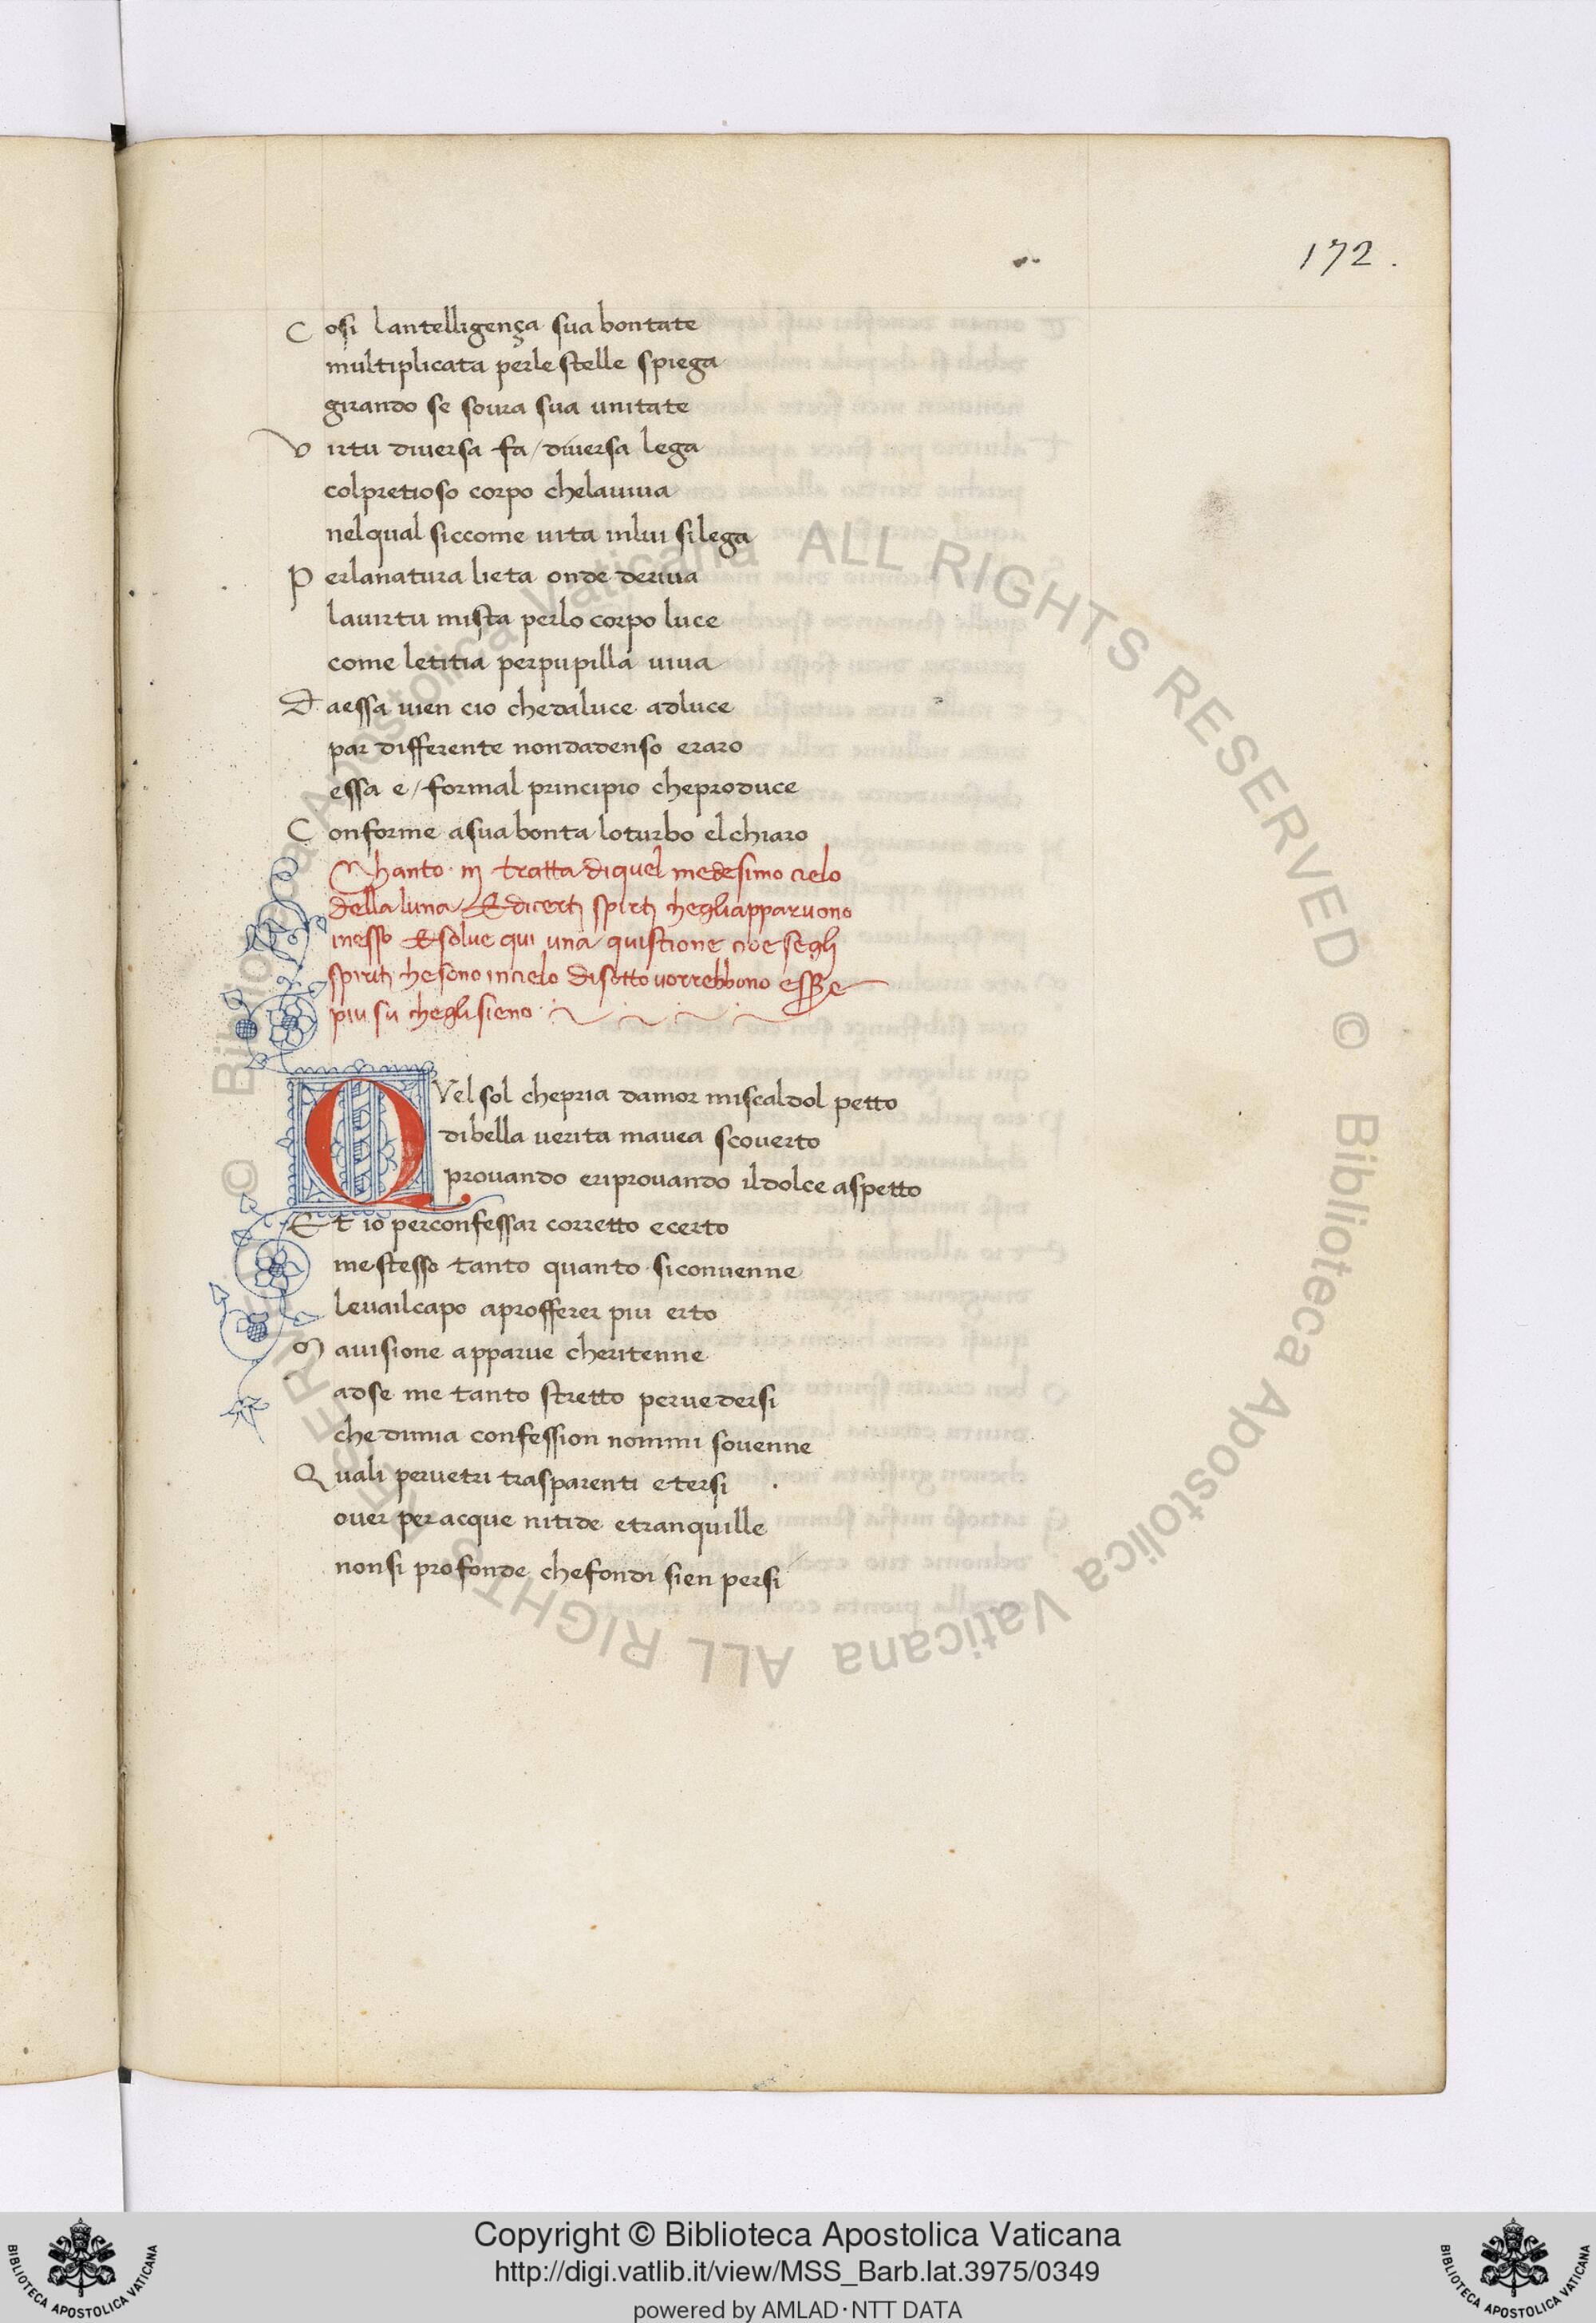 172.
Cosi lantelligença sua bontate
multiplicata perle stelle spiega
girando se soura sua unitate
Virtu diuersa fa / diuersa lega
colpretioso corpo chelauiua
nelqual siccome uita inlui silega
Perlanatura lieta onde deriua
lauirtu mista perlo corpo luce
come letitia perpupilla uiua
Daessa uien cio chedaluce adluce
par differente nondadenso eraro
essa e / formal principio cheproduce
Conforme asua bonta loturbo elchiaro
Chanto · iij tratta diquel medesimo cielo
della luna Et dicerti spiriti chegliapparuono
inesso Et solue qui una quistione cioe segli
spiriti chesono incielo disotto vorrebbono essere
piu su cheglisieno
QVel sol chepria damor miscaldol petto
dibella uerita mauea scouerto
prouando eriprouando ildolce aspetto
Et io perconfessar corretto ecerto
mestesso tanto quanto siconuenne
leuailcapo aprofferer piu erto
Mauisione apparue cheritenne
adse me tanto stretto peruedersi
chedimia confession nommi souenne
Quali peruetri trasparenti etersi
ouer per acque nitide etranquille
nonsi profonde chefondi sien persi
© Biblioteca Apostolica Vaticana ALL RIGHTS RESERVED © Biblioteca Apostolica Vaticana ALL RIGHTS RESERVED
Copyright © Biblioteca Apostolica Vaticana
http://digi.vatlib.it/view/MSS_Barb.lat.3975/0349
powered by AMLAD·NTT DATA
BIBLIOTECA APOSTOLICA VATICANA
BIBLIOTECA APOSTOLICA VATICANA